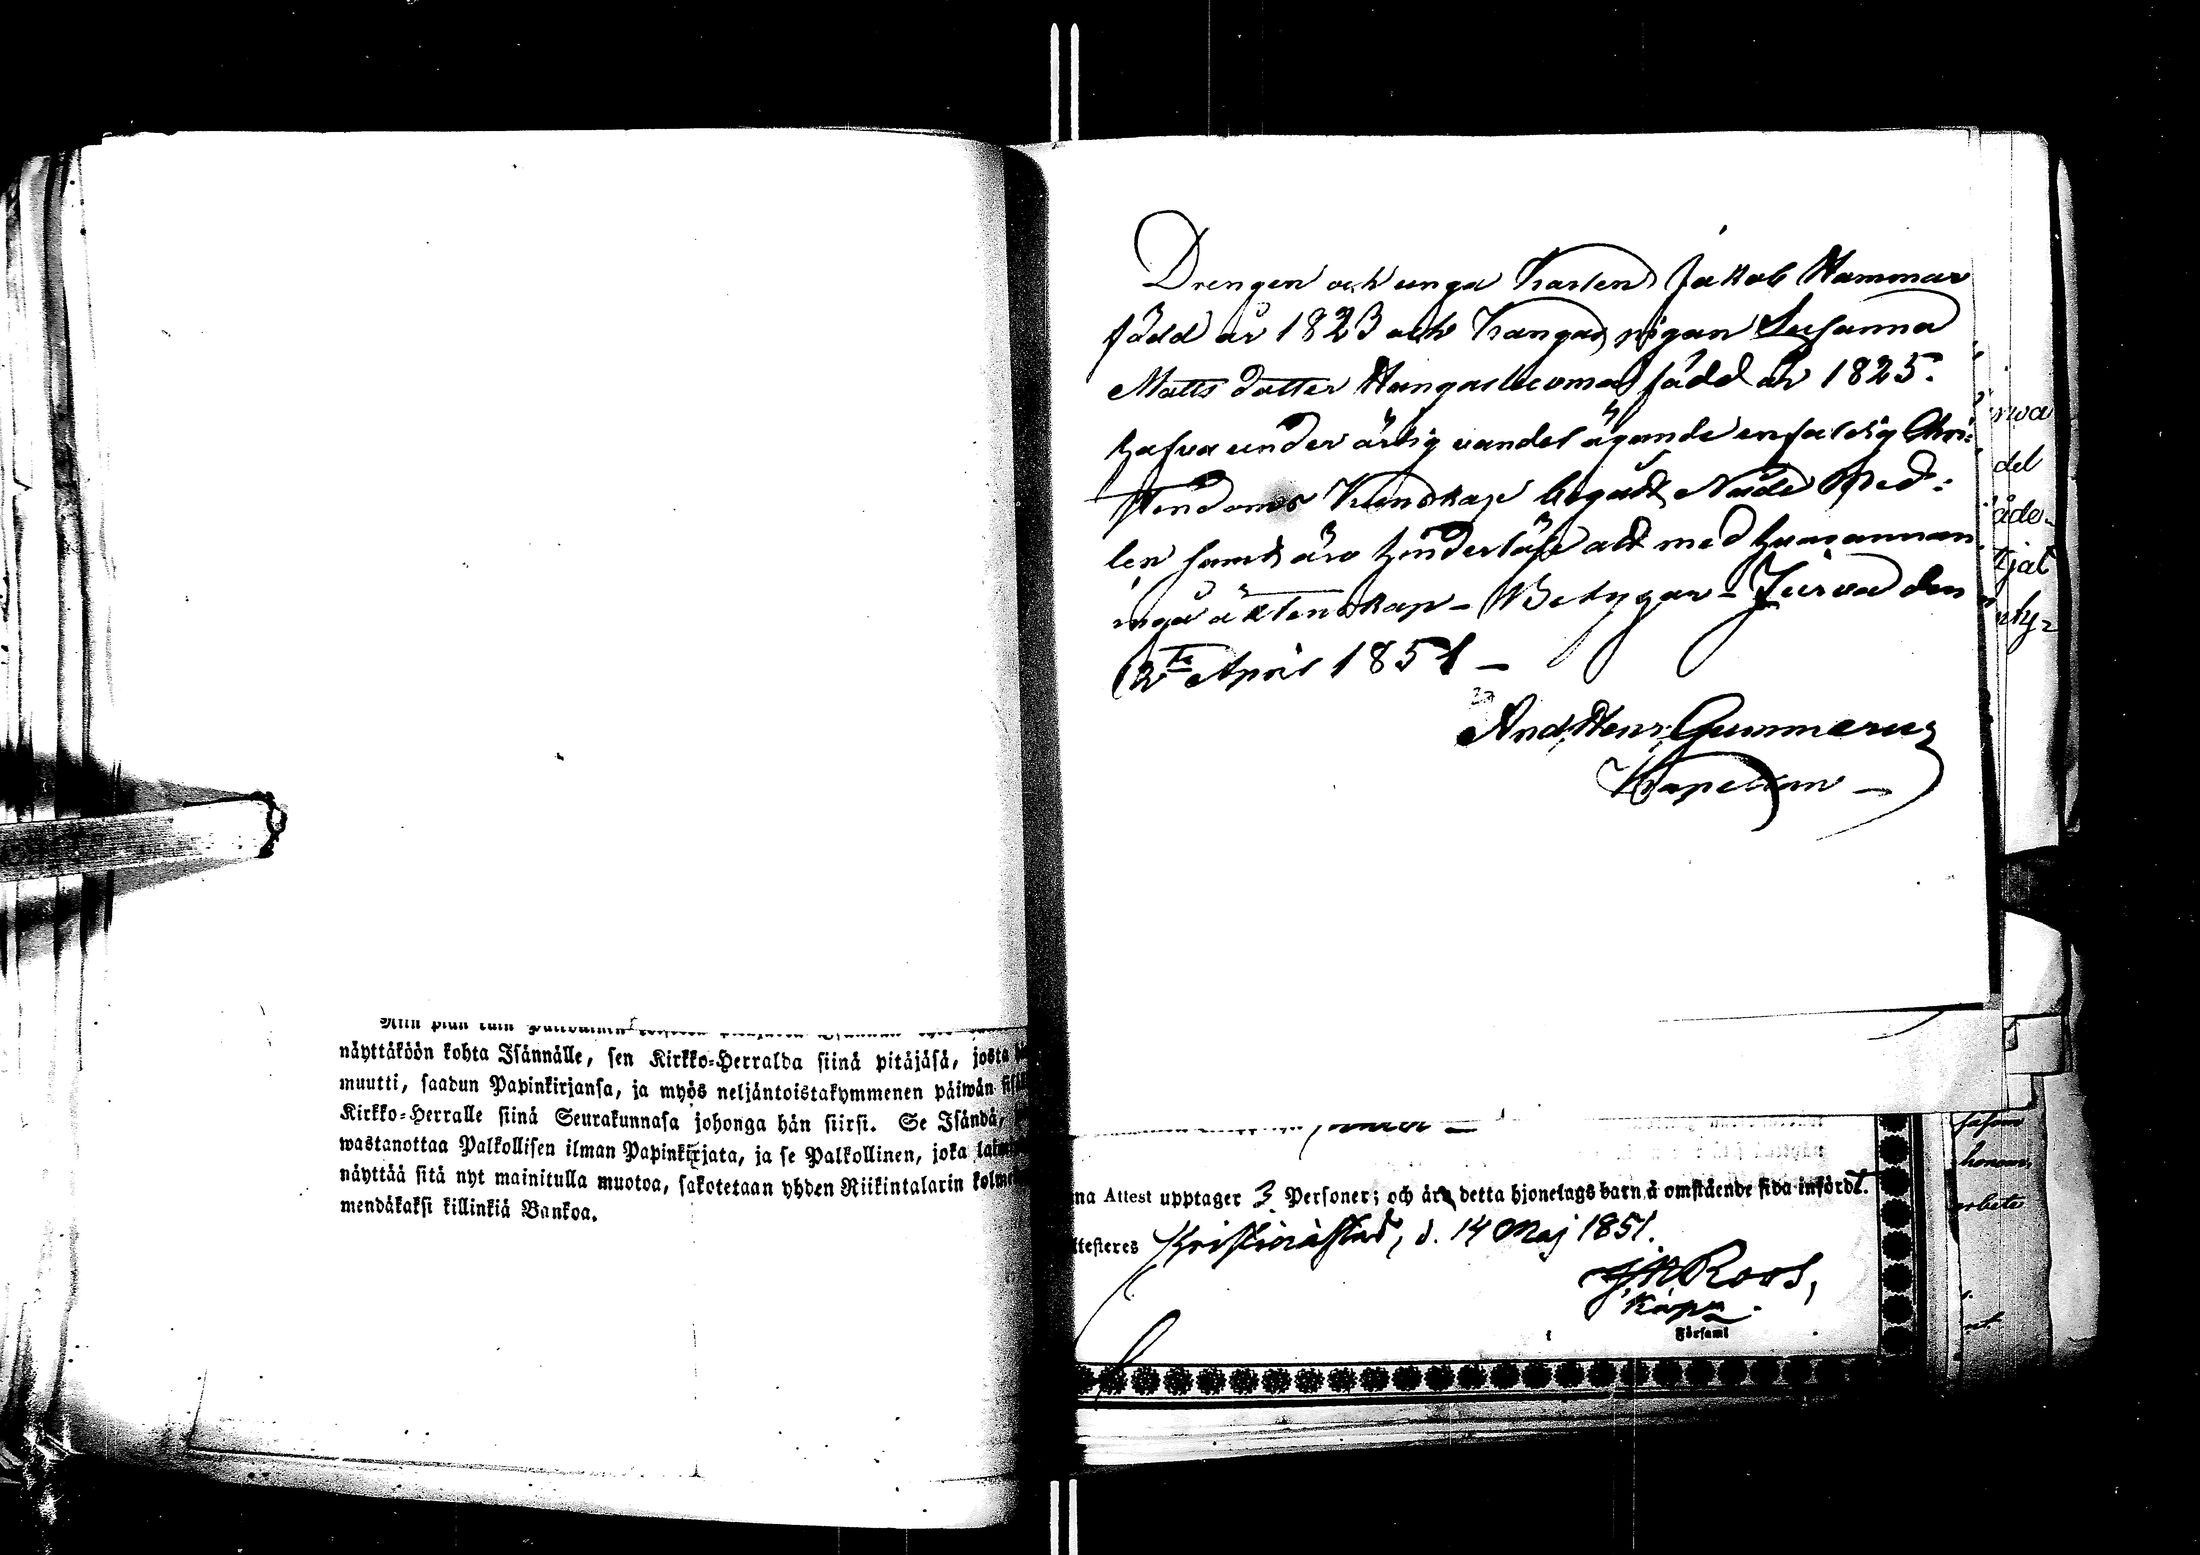 näyttäköön kohta Isännälle, sen Kirkko-Herralda siinä pitäjäsä, josta
muutti, saadun Papinkirjansa, ja myös neljäntoistakymmenen päiwän
Kirkko-Herralle siinä Seurakunnasa johonga hän siirsi. Se Isändä,
wastanottaa Palkollisen ilman Papinkirjata, ja se Palkollinen, joka
näyttää sitä nyt mainitulla muotoa, sakotetaan yhden Riikintalarin kolme
mendäkaksi killinkiä Bankoa.
Drengen och unga Karlen Jakob Hammar
född år 1823 och trangas pigan Susanna
Matts dotter Hangasluoma född år 1825.
hafva under ärlig vandel ägande enfaldig Chri=
stendoms Kundskap begådt Nåde Med=
len samt äro hinderlöse att med hvarannan
ingå äktenskap - Betygar - Jurva den
12te April 1851 -
And. Henr. Gummerus
Kapellan -
rwa
del
åde-
tjat
na Attest upptager 3 Personer; och äro detta hjonelags barn å omstående sida infördt.
ttesteres Kristinestad, d. 14 Maj 1851.
J N Roos,
Kapn.
Församl
honom
arbete